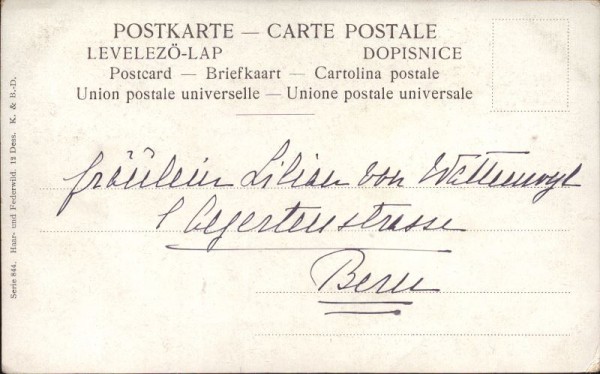 POSTKARTE — CARTE POSTALE
LEVELEZÖ-LAP DOPISNICE
Postcard — Briefkaart — Cartolina postale
Union postale universelle — Unione postale universale
Fräulein Lilian von Wattenwyl
Aegertenstrasse
Bern
Serie 844. Haar- und Federwild. 12 Dess. K. & B.-D.